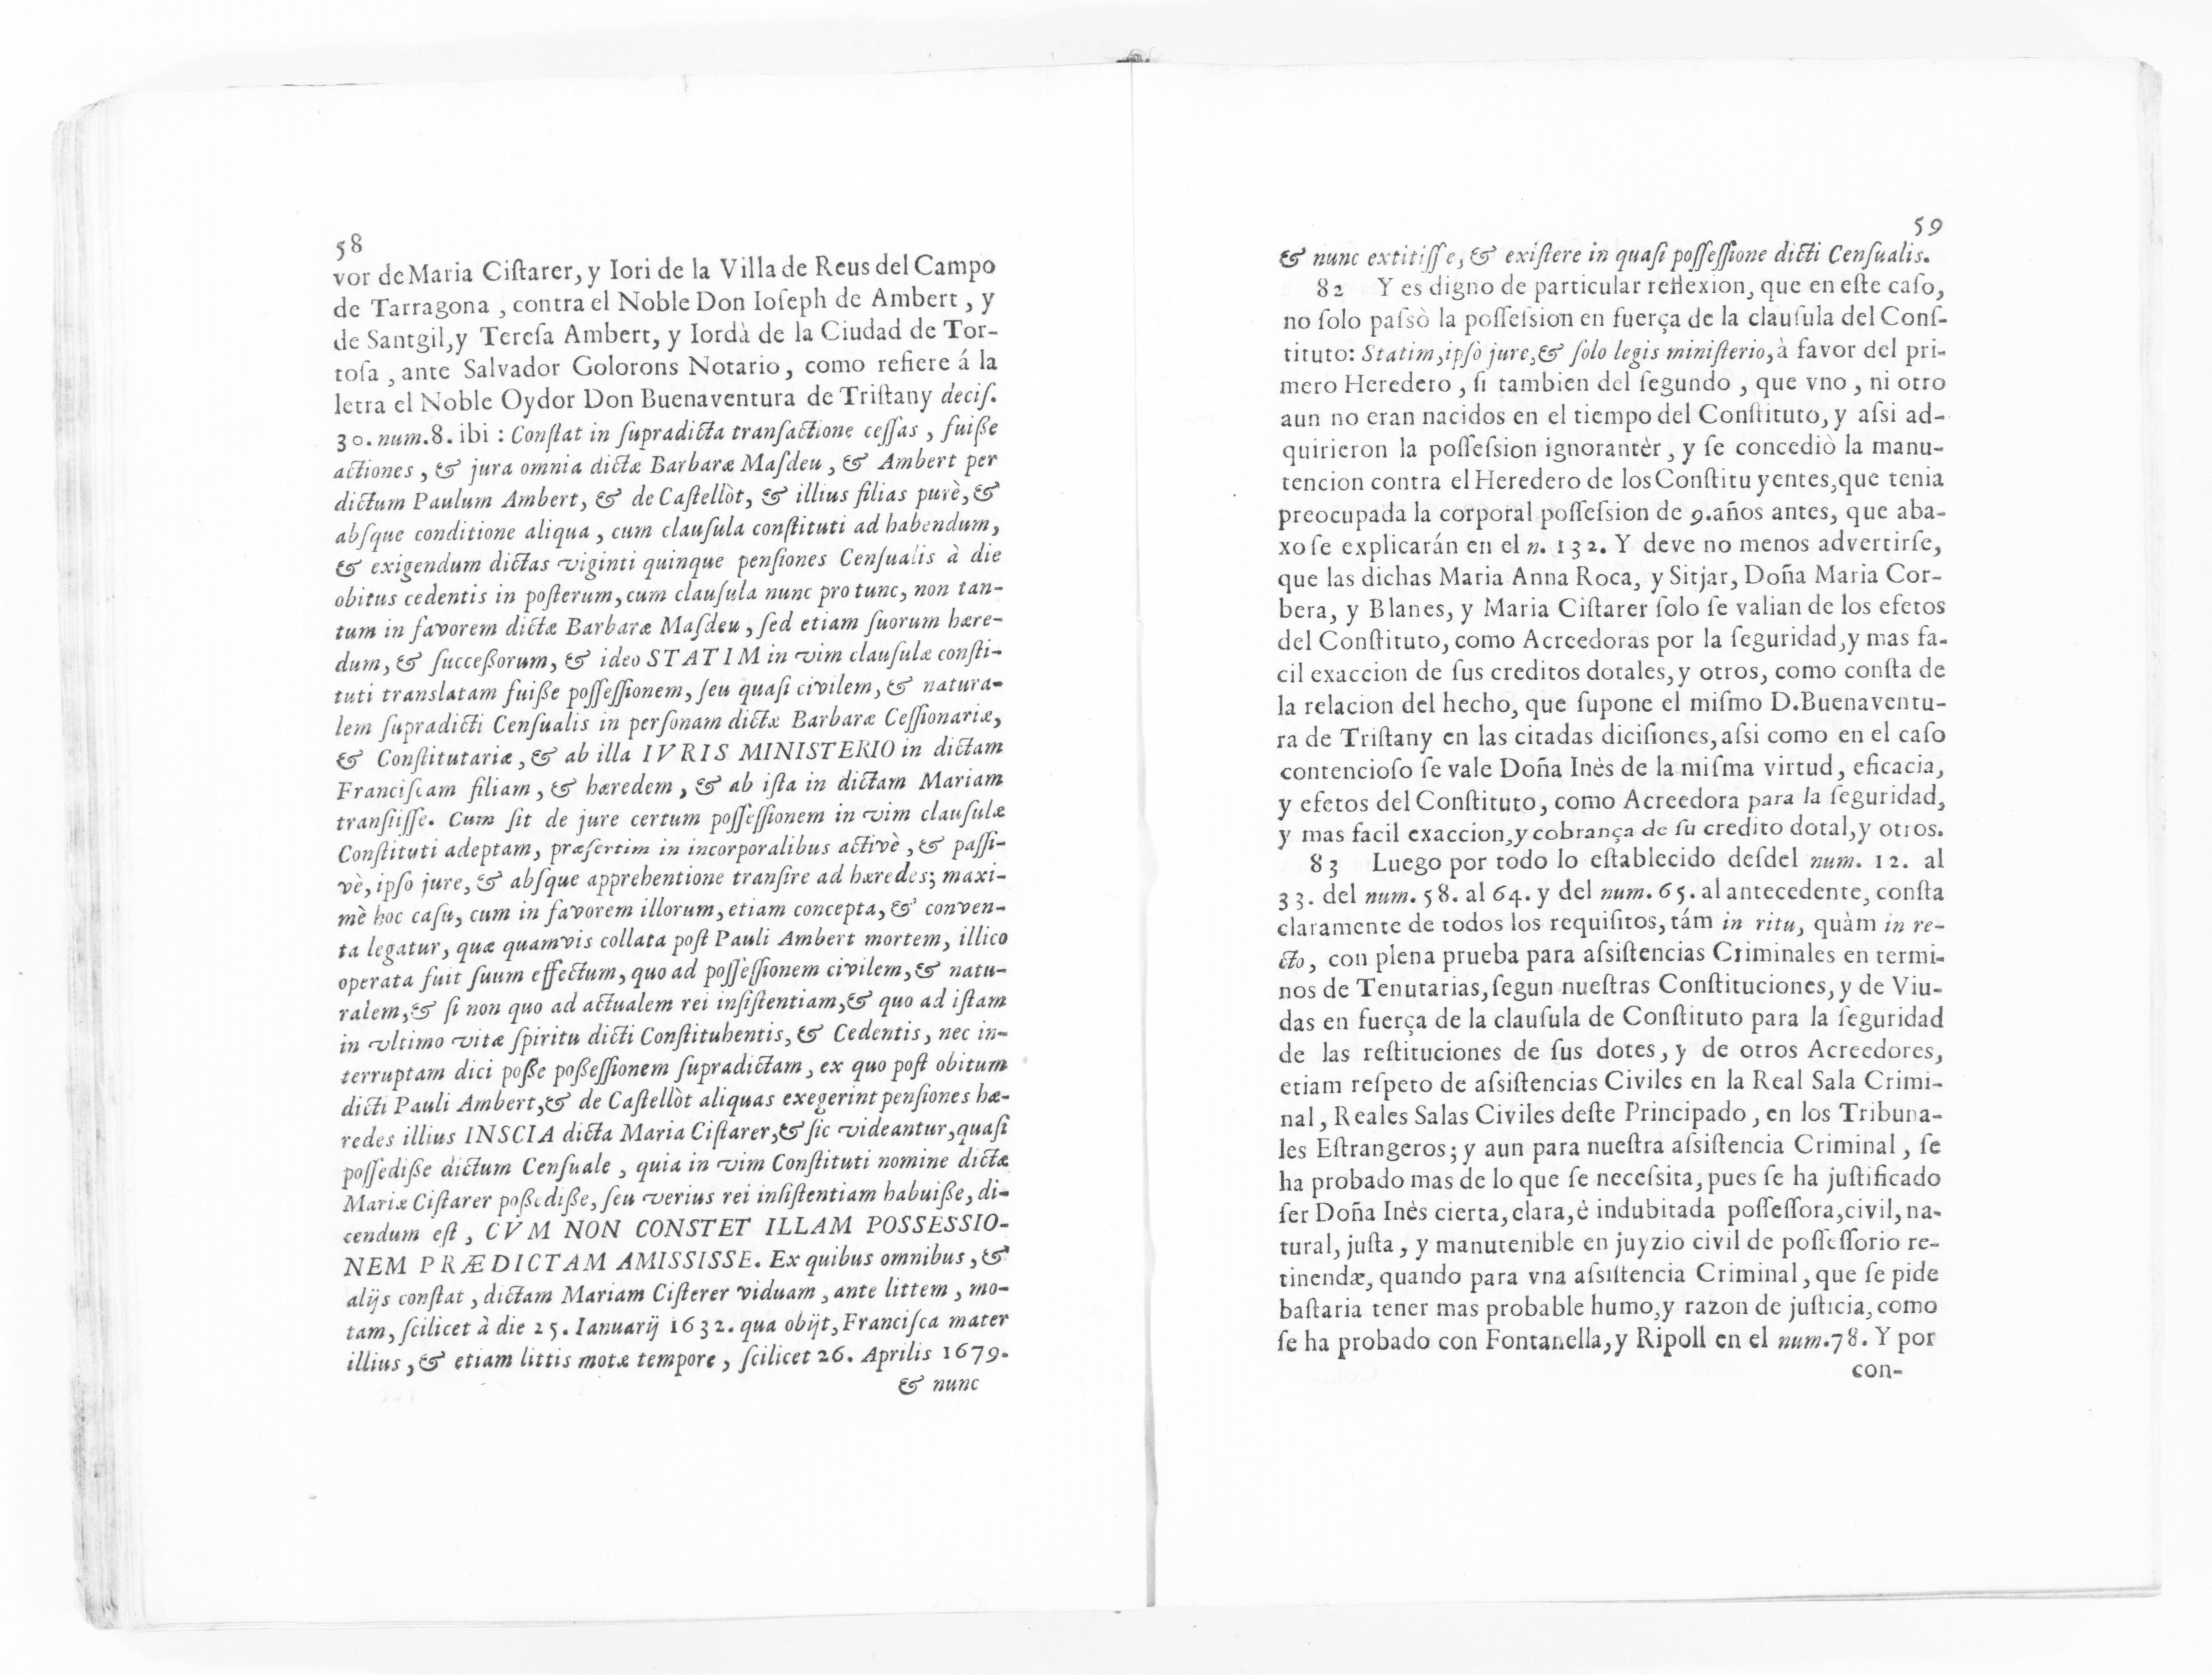 58
vor de Maria Ciſtarer, y Iori de la Villa de Reus del Campo
de Tarragona , contra el Noble Don Ioſeph de Ambert , y
de Santgil,y Tereſa Ambert, y Iordà de la Ciudad de Tor-
toſa , ante Salvador Golorons Notario , como refiere á la
letra el Noble Oydor Don Buenaventura de Triſtany deciſ.
30. num.8. ibi : Conſtat in ſupradicta tranſactione ceſſas , fuiße
actiones , & jura omnia dictæ Barbaræ Maſdeu , & Ambert per
dictum Paulum Ambert, & de Caſtellòt, & illius filias purè, &
abſque conditione aliqua , cum clauſula conſtituti ad habendum,
& exigendum dictas viginti quinque penſiones Cenſualis à die
obitus cedentis in poſterum, cum clauſula nunc pro tunc, non tan-
tum in favorem dictæ Barbaræ Maſdeu , ſed etiam ſuorum hære-
dum, & ſucceßorum, & ideo STATIM in vim clauſulæ conſti-
tuti translatam fuiße poſſeſſionem, ſeu quaſi civilem, & natura-
lem ſupradicti Cenſualis in perſonam dictæ Barbaræ Ceſſionariæ,
& Conſtitutariæ , & ab illa IVRIS MINISTERIO in dictam
Franciſcam filiam , & hæredem , & ab iſta in dictam Mariam
tranſiiſſe. Cum ſit de jure certum poſſeſſionem in vim clauſulæ
Conſtituti adeptam, præſertim in incorporalibus activè , & paſſi-
vè, ipſo jure, & abſque apprehentione tranſire ad hæredes; maxi-
mè hoc caſu, cum in favorem illorum, etiam concepta, & conven-
ta legatur, quæ quamvis collata poſt Pauli Ambert mortem, illico
operata fuit ſuum effectum, quo ad poſſeſſionem civilem, & natu-
ralem, & ſi non quo ad actualem rei inſiſtentiam, & quo ad iſtam
in vltimo vitæ ſpiritu dicti Conſtituhentis, & Cedentis, nec in-
terruptam dici poße poßeſſionem ſupradictam, ex quo poſt obitum
dicti Pauli Ambert, & de Caſtellòt aliquas exegerint penſiones hæ-
redes illius INSCIA dicta Maria Ciſtarer, & ſic videantur, quaſi
poſſediße dictum Cenſuale , quia in vim Conſtituti nomine dictæ
Mariæ Ciſtarer poßediße, ſeu verius rei inſiſtentiam habuiße, di-
cendum eſt , CVM NON CONSTET ILLAM POSSESSIO-
NEM PRÆDICTAM AMISSISSE. Ex quibus omnibus , &
alijs conſtat , dictam Mariam Ciſterer viduam , ante littem , mo-
tam, ſcilicet à die 25. Ianuarij 1632. qua obijt, Franciſca mater
illius , & etiam littis motæ tempore , ſcilicet 26. Aprilis 1679.
& nunc
59
& nunc extitiſſe, & exiſtere in quaſi poſſeſſione dicti Cenſualis.
82 Y es digno de particular reflexion, que en eſte caſo,
no ſolo paſsò la poſſeſsion en fuerça de la clauſula del Conſ-
tituto: Statim, ipſo jure, & ſolo legis miniſterio, à favor del pri-
mero Heredero , ſi tambien del ſegundo , que vno , ni otro
aun no eran nacidos en el tiempo del Conſtituto, y aſsi ad-
quirieron la poſſeſsion ignorantèr , y ſe concediò la manu-
tencion contra el Heredero de los Conſtituyentes, que tenia
preocupada la corporal poſſeſsion de 9. años antes, que aba-
xo ſe explicarán en el n. 132. Y deve no menos advertirſe,
que las dichas Maria Anna Roca, y Sitjar, Doña Maria Cor-
bera, y Blanes, y Maria Ciſtarer ſolo ſe valian de los efetos
del Conſtituto, como Acreedoras por la ſeguridad,y mas fa-
cil exaccion de ſus creditos dotales, y otros, como conſta de
la relacion del hecho, que ſupone el miſmo D.Buenaventu-
ra de Triſtany en las citadas diciſiones, aſsi como en el caſo
contencioſo ſe vale Doña Inès de la miſma virtud, eficacia,
y efetos del Conſtituto, como Acreedora para la ſeguridad,
y mas facil exaccion, y cobrança de ſu credito dotal, y otros.
83 Luego por todo lo eſtablecido deſdel num. 12. al
33. del num. 58. al 64. y del num. 65. al antecedente, conſta
claramente de todos los requiſitos, tám in ritu, quàm in re-
cto, con plena prueba para aſsiſtencias Criminales en termi-
nos de Tenutarias, ſegun nueſtras Conſtituciones, y de Viu-
das en fuerça de la clauſula de Conſtituto para la ſeguridad
de las reſtituciones de ſus dotes, y de otros Acreedores,
etiam reſpeto de aſsiſtencias Civiles en la Real Sala Crimi-
nal , Reales Salas Civiles deſte Principado , en los Tribuna-
les Eſtrangeros; y aun para nueſtra aſsiſtencia Criminal , ſe
ha probado mas de lo que ſe neceſsita, pues ſe ha juſtificado
ſer Doña Inès cierta, clara, è indubitada poſſeſſora, civil, na-
tural, juſta , y manutenible en juyzio civil de poſſeſſorio re-
tinendæ, quando para vna aſsiſtencia Criminal , que ſe pide
baſtaria tener mas probable humo, y razon de juſticia, como
ſe ha probado con Fontanella, y Ripoll en el num.78. Y por
con-